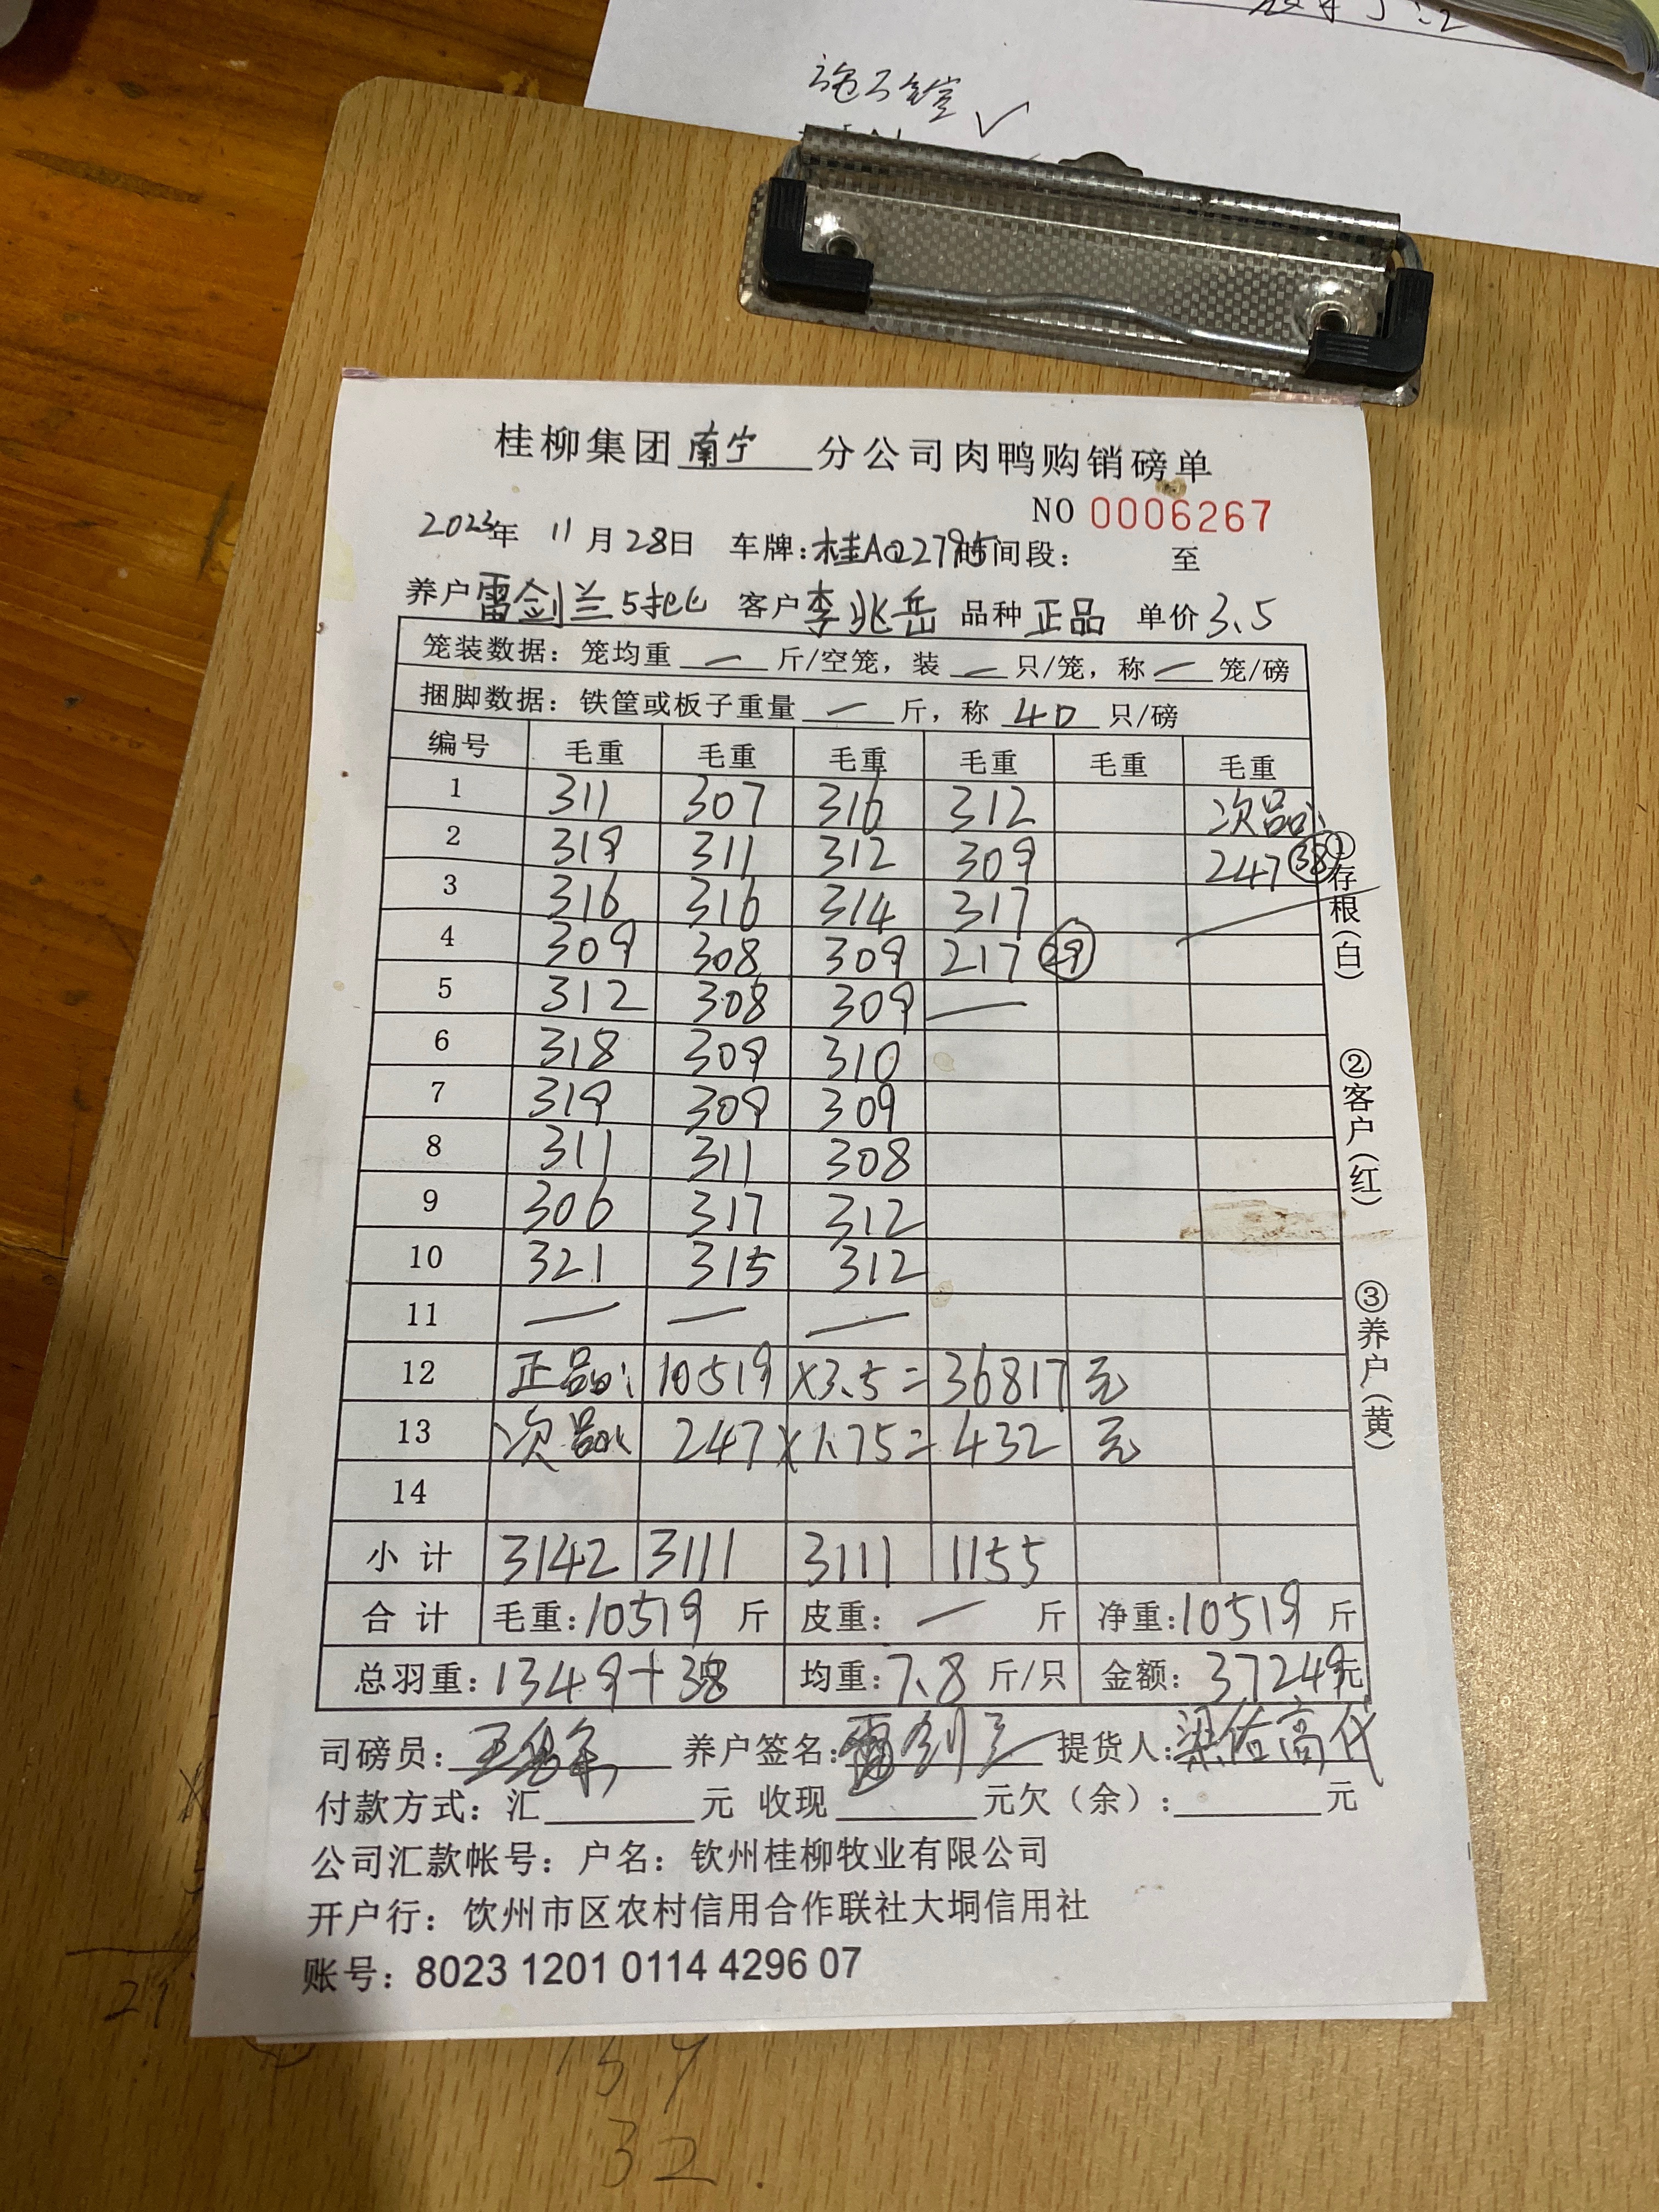 施工
桂柳集团南宁分公司肉鸭购销磅单
NO 0006267
2023年 11月28日 车牌:桂A 2795 时间段: 至
养户雷剑兰5批 客户李兆岳 品种正品 单价3.5
笼装数据: 笼均重 — 斤/空笼, 装 — 只/笼, 称 — 笼/磅
捆脚数据: 铁筐或板子重量 — 斤, 称 40 只/磅
编号 毛重 毛重 毛重 毛重 毛重 毛重
1 311 307 316 312 次品:
2 319 311 312 309 247 38
3 316 316 314 317
4 309 308 309 217 29
5 312 308 309 —
6 318 309 310
7 319 309 309
8 311 311 308
9 306 317 312
10 321 315 312
11 — — —
12 正品: 10519 ×3.5= 36817 元
13 次品: 247 ×1.75= 432 元
14
小计 3142 3111 3111 1155
合计 毛重:10519 斤 皮重: — 斤 净重:10519 斤
总羽重:1349+38 均重:7.8 斤/只 金额: 37249元
①存根(白)
②客户(红)
③养户(黄)
司磅员: 养户签名:雷剑兰 提货人:梁佐高代
付款方式: 汇 元 收现 元欠(余): 元
公司汇款帐号: 户名: 钦州桂柳牧业有限公司
开户行: 饮州市区农村信用合作联社大垌信用社
账号: 8023 1201 0114 4296 07
32